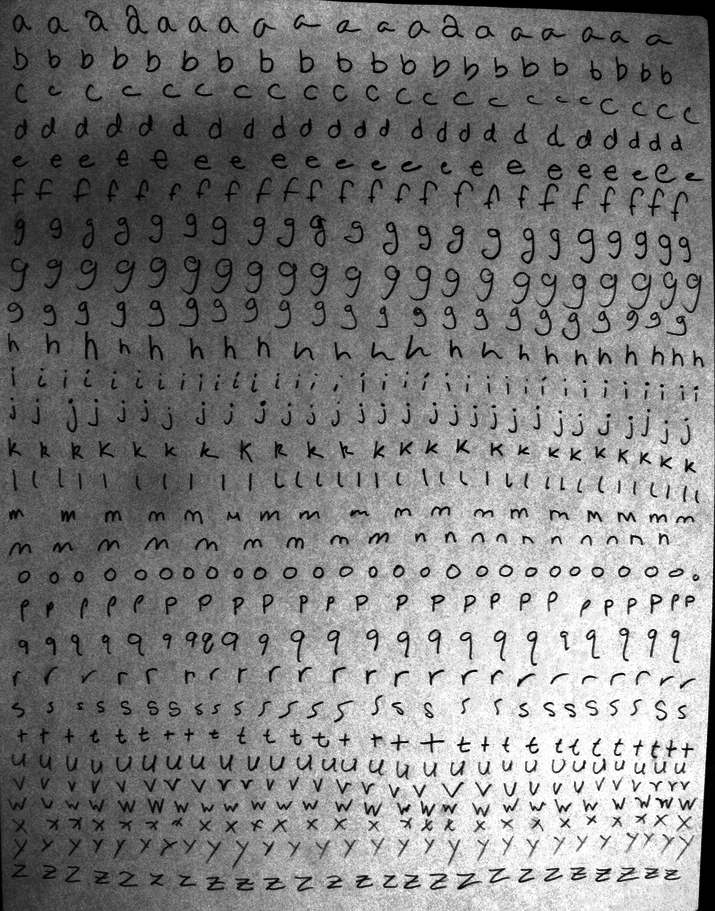 a a a a a a a a a a a a a a a a a a a a
b b b b b b b b b b b b b b b b b b b b b
c c c c c c c c c c c c c c c c c c c c c c c
d d d d d d d d d d d d d d d d d d d d d d d
e e e e e e e e e e e e e e e e e e e e e e
f f f f f f f f f f f f f f f f f f f f f f f
g g g g g g g g g g g g g g g g g g g g g g
g g g g g g g g g g g g g g g g g g g g g g g
g g g g g g g g g g g g g g g g g g g g g g g
h h h h h h h h h h h h h h h h h h h h h h
i i i i i i i i i i i i i i i i i i i i i i i i i i i i i
j j j j j j j j j j j j j j j j j j j j j j j j j j j
k k k k k k k k k k k k k k k k k k k k k k k
l l l l l l l l l l l l l l l l l l l l l l l l l l l l
m m m m m m m m m m m m m m m m m m m
m m m m m m m m m n n n n n n n n n n
o o o o o o o o o o o o o o o o o o o o o o o o o o o
p p p p p p p p p p p p p p p p p p p p p p p
q q q q q q q q q q q q q q q q q q q q q q q
r r r r r r r r r r r r r r r r r r r r r r
s s s s s s s s s s s s s s s s s s s s s s s s s s s
t t t t t t t t t t t t t t t t t t t t t t t t t t t
u u u u u u u u u u u u u u u u u u u u u u u u u u u
v v v v v v v v v v v v v v v v v v v v v v v v v
w w w w w w w w w w w w w w w w w w w w w w w w w w
x x x x x x x x x x x x x x x x x x x x x x x x
y y y y y y y y y y y y y y y y y y y y y y y y
z z z z z z z z z z z z z z z z z z z z z z z z